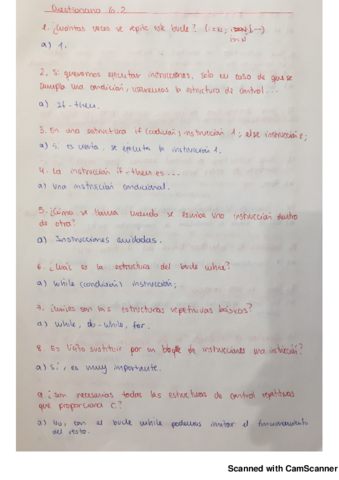 Cuestionario 6.2
1. ¿Cuántas veces se repite este bucle?
a) 1.
2. Si queremos ejecutar instrucciones, solo en caso de que se
cumpla una condición, usaremos la estructura de control...
a) If - then.
3. En una estructura if (condición) instrucción 1; else instrucción 2;
a) Si es cierta se ejecuta la instrucción 1.
4. La instrucción if - then es...
a) Una instrucción condicional.
5. ¿Cómo se llama cuando se escribe una instrucción dentro
de otra?
a) Instrucciones anidadas.
6. ¿Cuál es la estructura del bucle while?
a) while (condición) instrucción;
7. ¿Cuáles son las estructuras repetitivas básicas?
a) while, do-while, for.
8. Es lícito sustituir por un bloque de instrucciones una instrucción?
a) Sí, es muy importante.
9. ¿Son necesarias todas las estructuras de control repetitivas
que proporciona C?
a) No, con el bucle while podemos imitar el funcionamiento
del resto.
Scanned with CamScanner